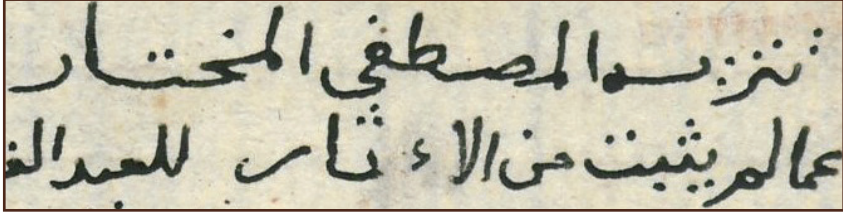 تنزيه المصطفى المختار
عما لم يثبت من الاءثار للعبد الف